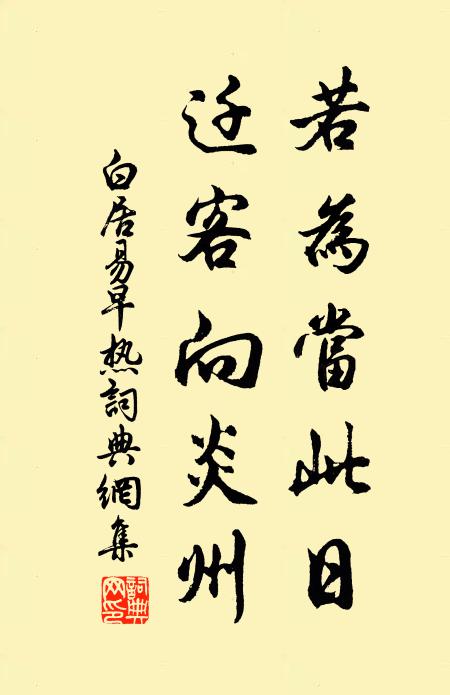 若為當此日
迁客向炎州
白居易早热詞典網集
詞典网印